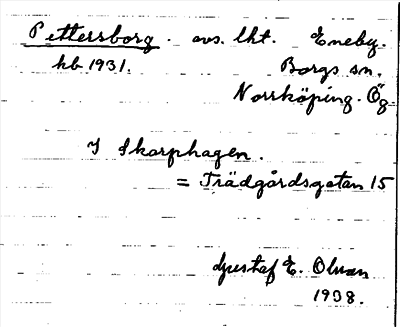 Pettersborg. avs. lht. Eneby.
kb 1931. Borgs sn.
Norrköping. Ög.
I Skarphagen.
= Trädgårdsgatan 15
Gustaf E. Olsson
1938.